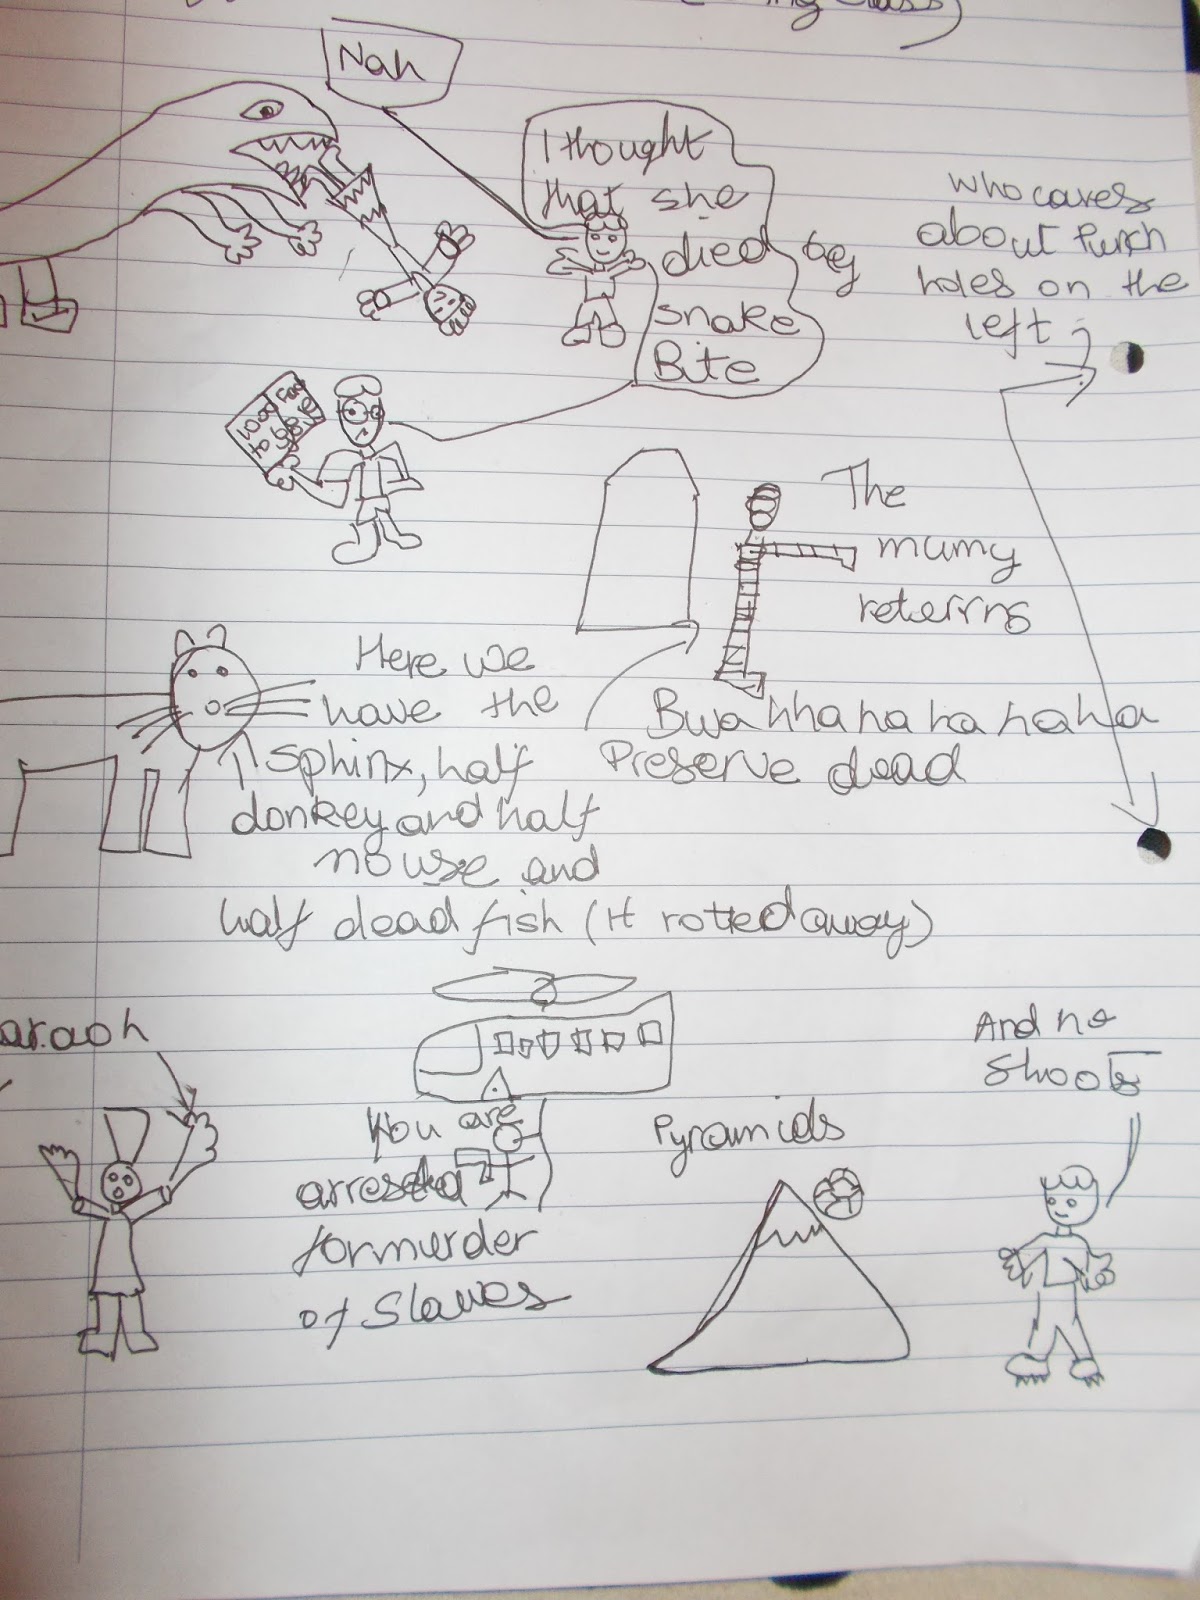 Nah
I thought
that she
died by
snake
Bite
who cares
about Punch
holes on the
left
The
mumy
reterrns
Bwahhhahahahaha
Preserve dead
Here we
have the
sphinx, half
donkey and half
mouse and
half dead fish (It rotted away)
araoh
You are
arrested
for murder
of Slaves
Pyramids
And no
Shoots